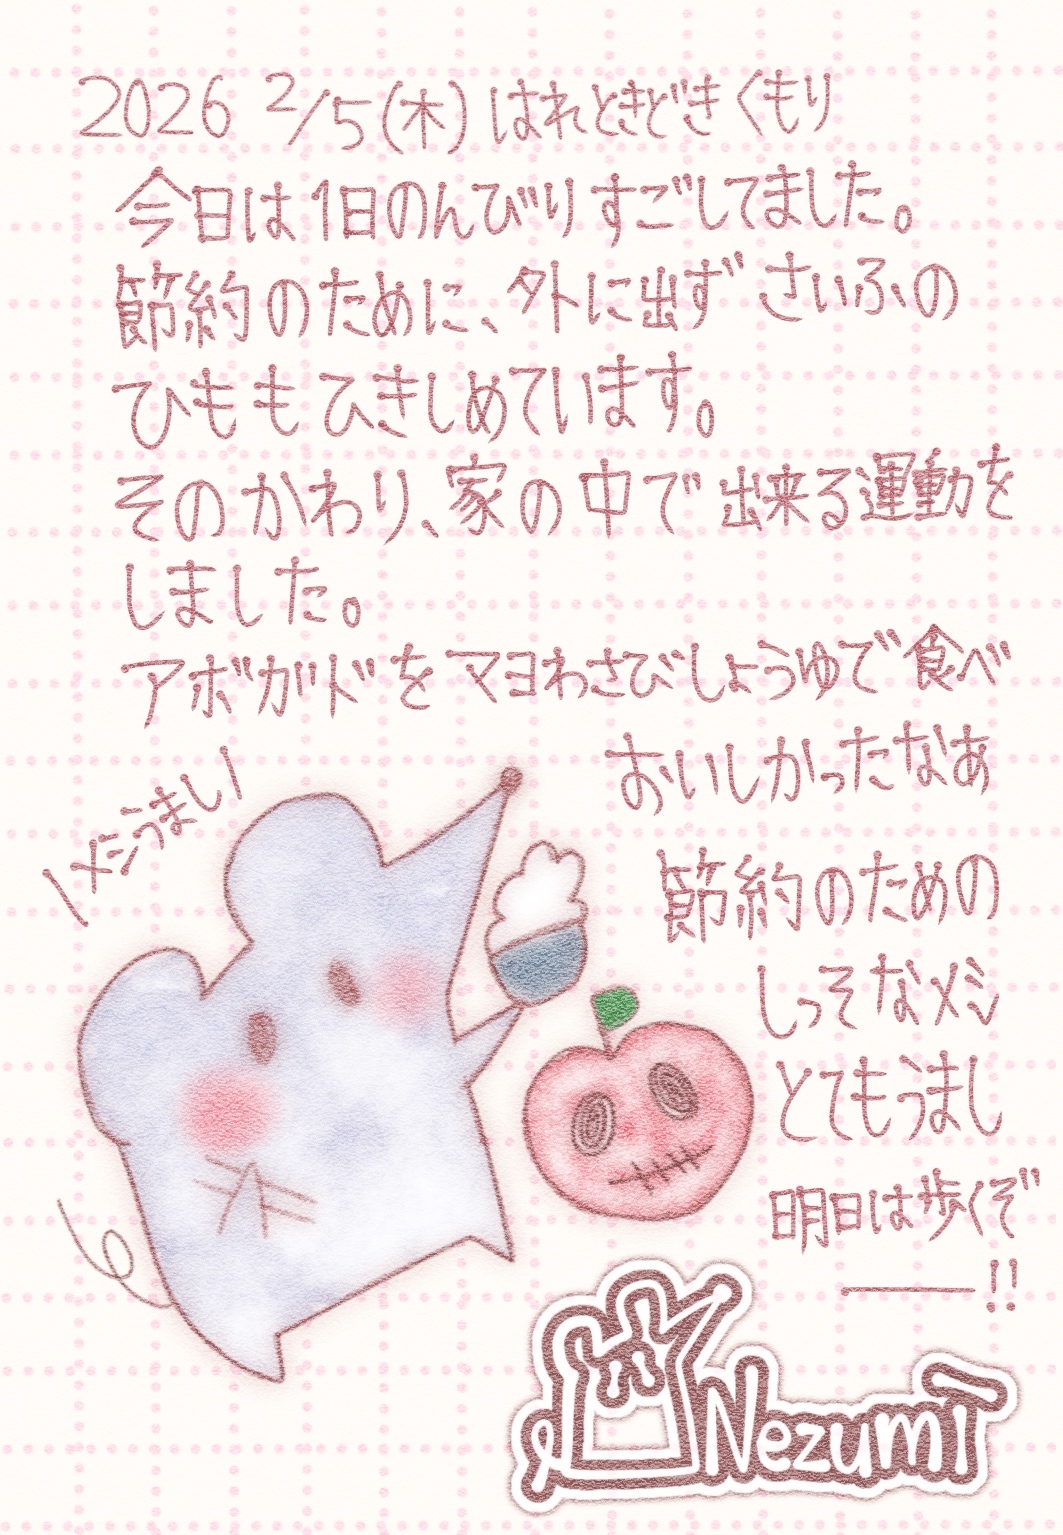 2026 2/5(木) はれときどきくもり
今日は1日のんびりすごしてました。
節約のために、外に出ずさいふの
ひももひきしめています。
そのかわり、家の中で出来る運動を
しました。
アボガドをマヨわさびしょうゆで食べ
おいしかったなあ
メシうまし
節約のための
しっそなメシ
とてもうまし
明日は歩くぞ
ー!!
Nezumi